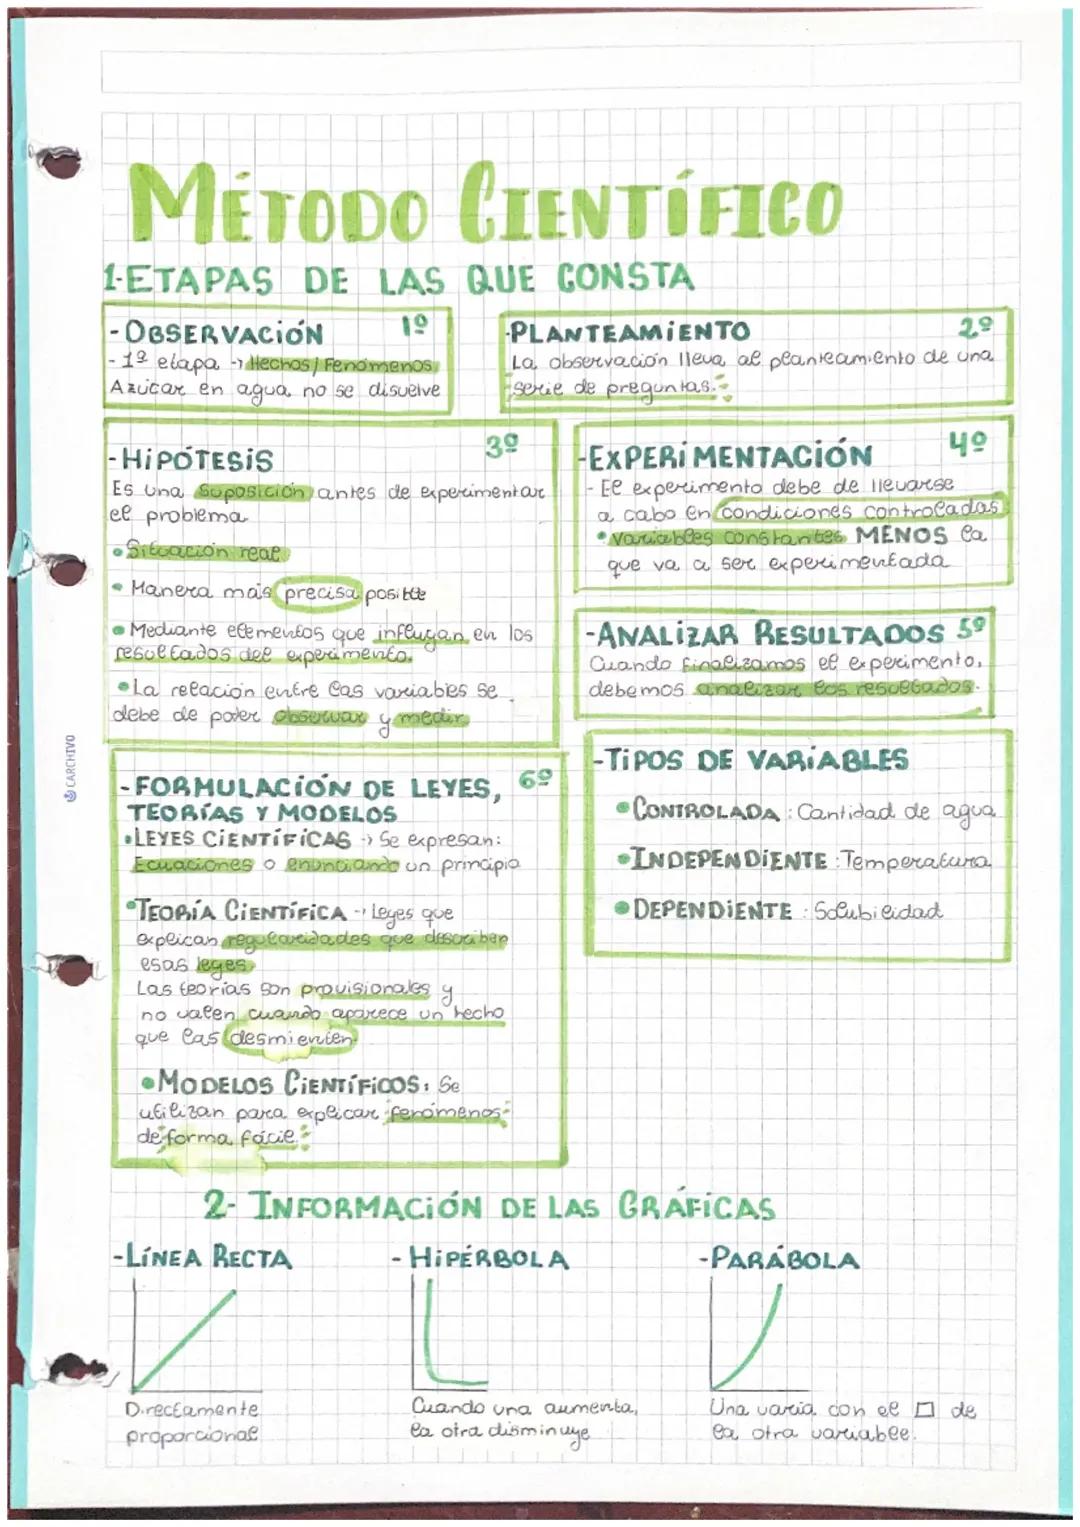 MÉTODO CIENTÍFICO
1-ETAPAS DE LAS QUE CONSTA
-OBSERVACIÓN 1º
- 1ª etapa → Hechos/Fenómenos
Azúcar en agua no se disuelve
-PLANTEAMIENTO 2º
La observación lleva al planteamiento de una
serie de preguntas.
-HIPÓTESIS 3º
Es una suposición antes de experimentar
el problema
• Situación real
• Manera más precisa posible
• Mediante elementos que influyan en los
resultados del experimento.
• La relación entre las variables se
debe de poder observar y medir
-EXPERIMENTACIÓN 4º
- El experimento debe de llevarse
a cabo en condiciones controladas
• variables constantes MENOS la
que va a ser experimentada
-ANALIZAR RESULTADOS 5º
Cuando finalizamos el experimento,
debemos analizar los resultados.
-FORMULACIÓN DE LEYES, 6º
TEORÍAS Y MODELOS
• LEYES CIENTÍFICAS → Se expresan:
Ecuaciones o enunciando un principio
• TEORÍA CIENTÍFICA → Leyes que
explican regularidades que describen
esas leyes
Las teorías son provisionales y
no valen cuando aparece un hecho
que las desmienten.
• MODELOS CIENTÍFICOS: Se
utilizan para explicar fenómenos
de forma fácil.
-TIPOS DE VARIABLES
• CONTROLADA: Cantidad de agua
• INDEPENDIENTE: Temperatura
• DEPENDIENTE: Solubilidad
2- INFORMACIÓN DE LAS GRÁFICAS
-LÍNEA RECTA
Directamente
proporcional
- HIPÉRBOLA
Cuando una aumenta,
la otra disminuye
-PARÁBOLA
Una varia con el □ de
la otra variable.
CARCHIVO